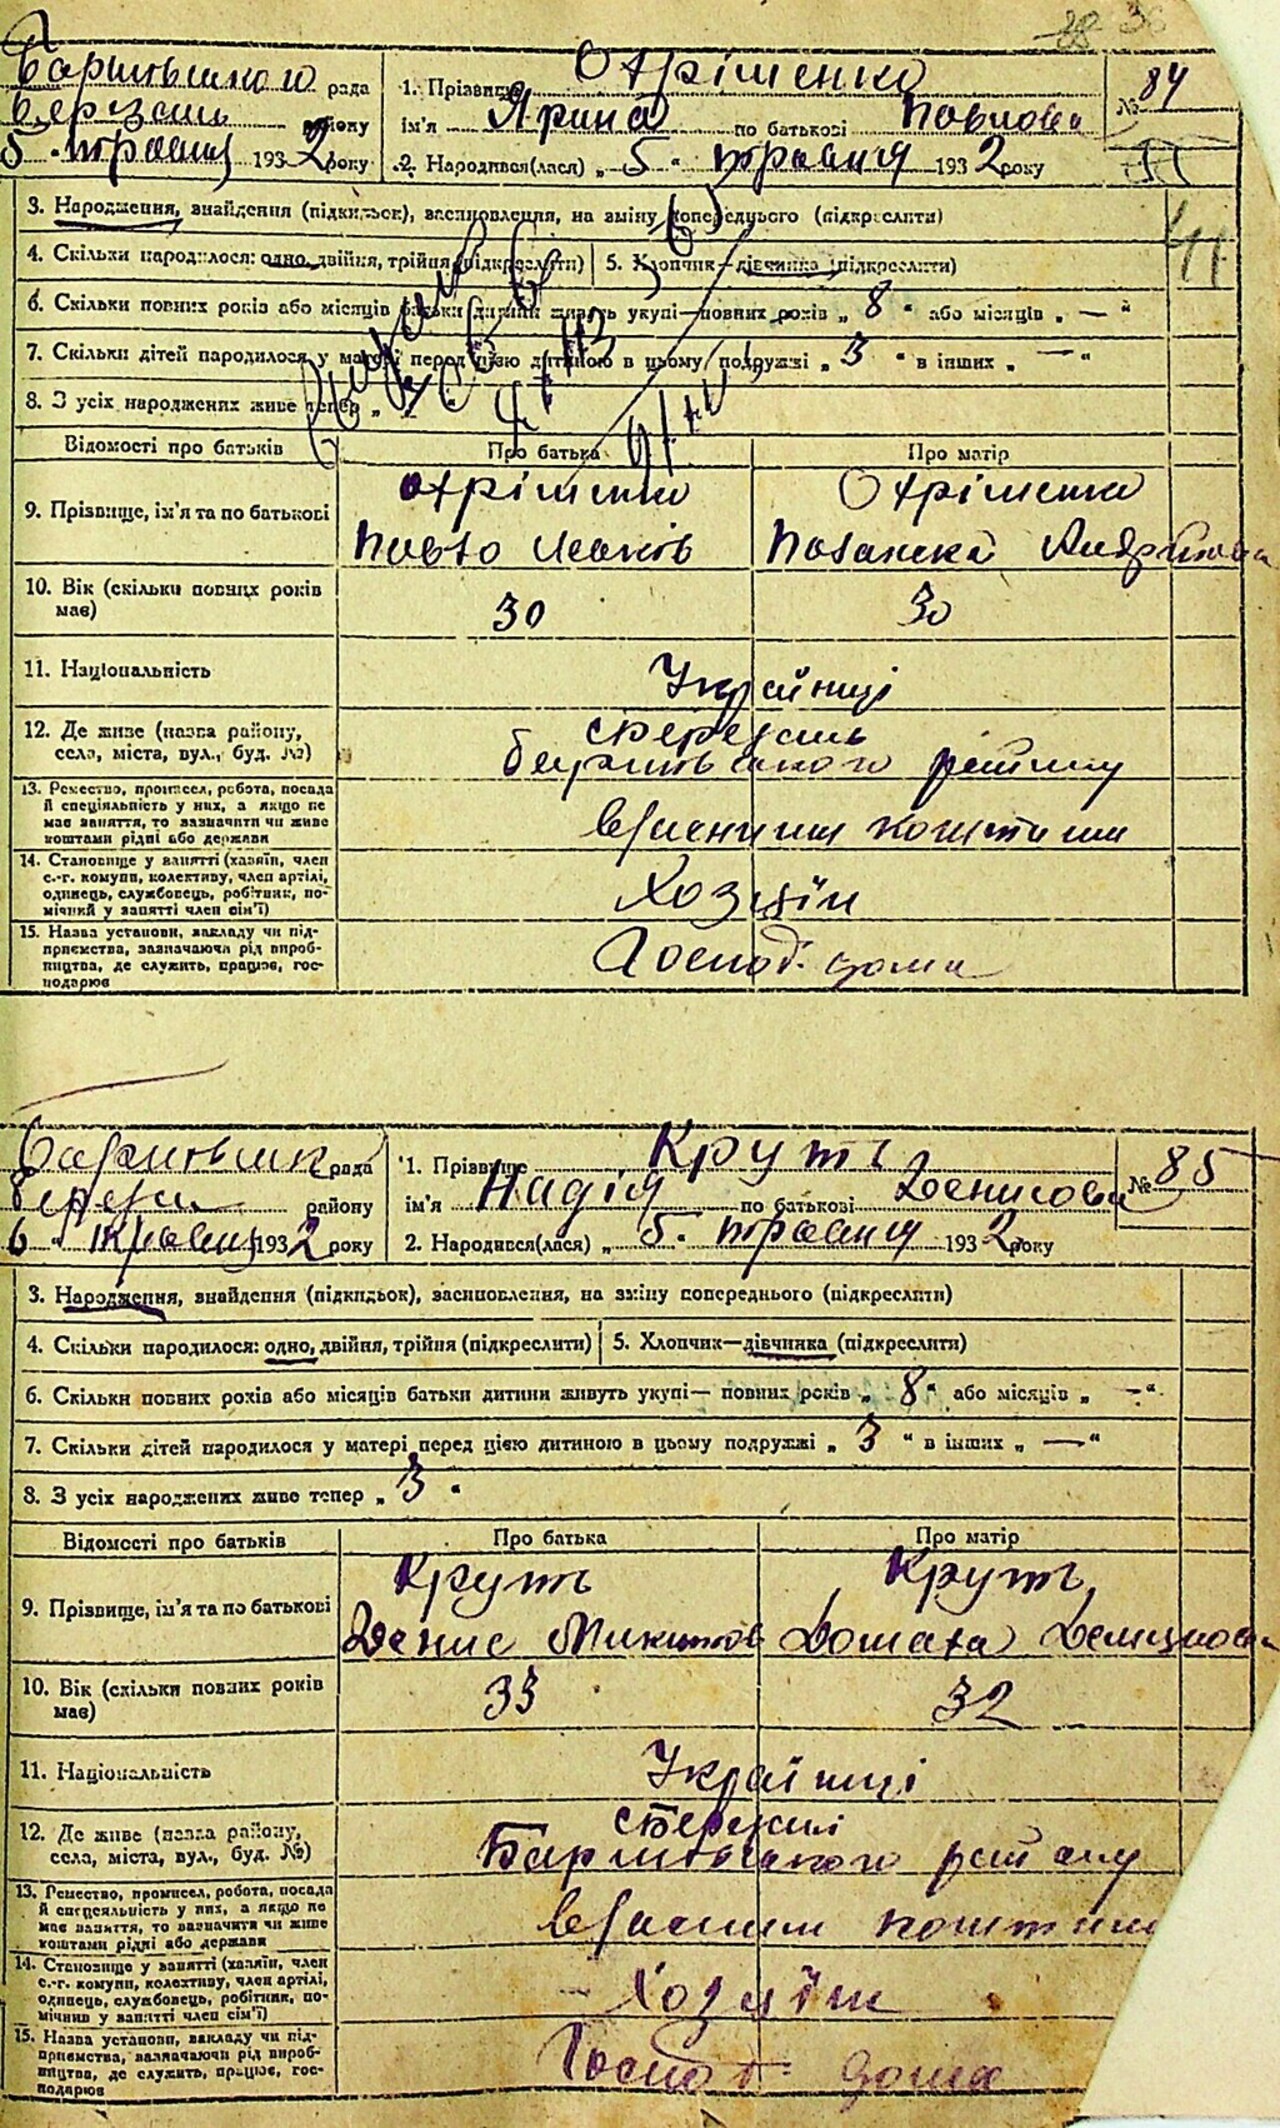 38
Баришівського рада
1. Прізвище Охріменко
№ 84
Березань району
ім'я Ярина по батькові Павлова
5 травня 1932 року
2. Народився(лася) „ 5 “ травня 1932 року
3. Народження, знайдення (підкидьок), засиновлення, на зміну попереднього (підкреслити)
4. Скільки народилося: одно, двійня, трійня (підкреслити)
5. Хлопчик—дівчинка (підкреслити)
6. Скільки повних років або місяців батьки дитини живуть укупі—повних років „ 8 “ або місяців „ — “
7. Скільки дітей народилося у матері перед цією дитиною в цьому подружжі „ 3 “ в інших „ — “
8. З усіх народжених живе тепер „
Відомості про батьків
Про батька
Про матір
9. Прізвище, ім'я та по батькові
Охріменко
Охріменко
Павло Яковів
Палажка Андріївна
10. Вік (скільки повних років
має)
30
30
11. Національність
Українці
12. Де живе (назва району,
села, міста, вул., буд. №)
с Березань
Баришівського району
13. Ремество, промисел, робота, посада
й спеціяльність у них, а якщо не
має заняття, то зазначити чи живе
коштами рідні або держави
власними коштами
14. Становище у занятті (хазяїн, член
с.-г. комуни, колективу, член артілі,
одинець, службовець, робітник, по-
мічний у занятті член сім'ї)
Хозяїн
15. Назва установи, закладу чи під-
приємства, зазначаючи рід вироб-
ництва, де служить, працює, гос-
подарює
Господ. дома
Баришівська рада
1. Прізвище Круть
№ 85
району
ім'я Надія по батькові Денисова
6 “ травня 1932 року
2. Народився(лася) „ 5 “ травня 1932 року
3. Народження, знайдення (підкидьок), засиновлення, на зміну попереднього (підкреслити)
4. Скільки народилося: одно, двійня, трійня (підкреслити)
5. Хлопчик—дівчинка (підкреслити)
6. Скільки повних років або місяців батьки дитини живуть укупі— повних років „ 8 “ або місяців „ — “
7. Скільки дітей народилося у матері перед цією дитиною в цьому подружжі „ 3 “ в інших „ — “
8. З усіх народжених живе тепер „ 3 “
Відомості про батьків
Про батька
Про матір
9. Прізвище, ім'я та по батькові
Круть
Круть
Денис Микитов
Домаха
10. Вік (скільки повних років
має)
33
32
11. Національність
Українці
12. Де живе (назва району,
села, міста, вул., буд. №)
Баришівського району
13. Ремество, промисел, робота, посада
й спеціяльність у них, а якщо не
має заняття, то зазначити чи живе
коштами рідні або держави
власними коштами
14. Становище у занятті (хазяїн, член
с.-г. комуни, колективу, член артілі,
одинець, службовець, робітник, по-
мічний у занятті член сім'ї)
Хозяїн
15. Назва установи, закладу чи під-
приємства, зазначаючи рід вироб-
ництва, де служить, працює, гос-
подарює
Господ. дома